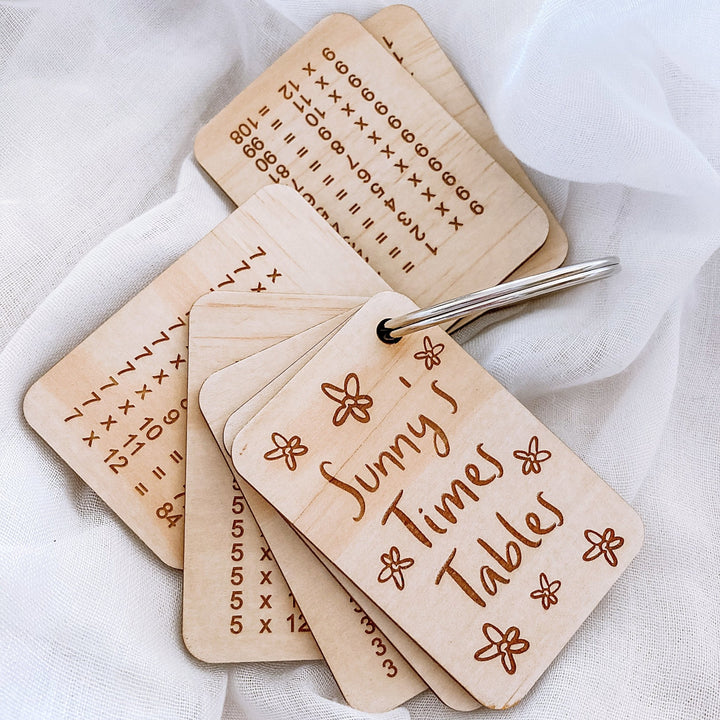 Sunny's
Times
Tables
9 x 1 =
9 x 2 =
9 x 3 =
9 x 4 =
9 x 5 =
9 x 6 =
9 x 7 =
9 x 8 = 7
9 x 9 = 81
9 x 10 = 90
9 x 11 = 99
9 x 12 = 108
7 x
7 x
7
7
7 x
7 x
7 x 9
7 x 10 =
7 x 11 = 7
7 x 12 = 84
5
5
5 x
5 x
5 x 1
5 x 12
3
3
3
1